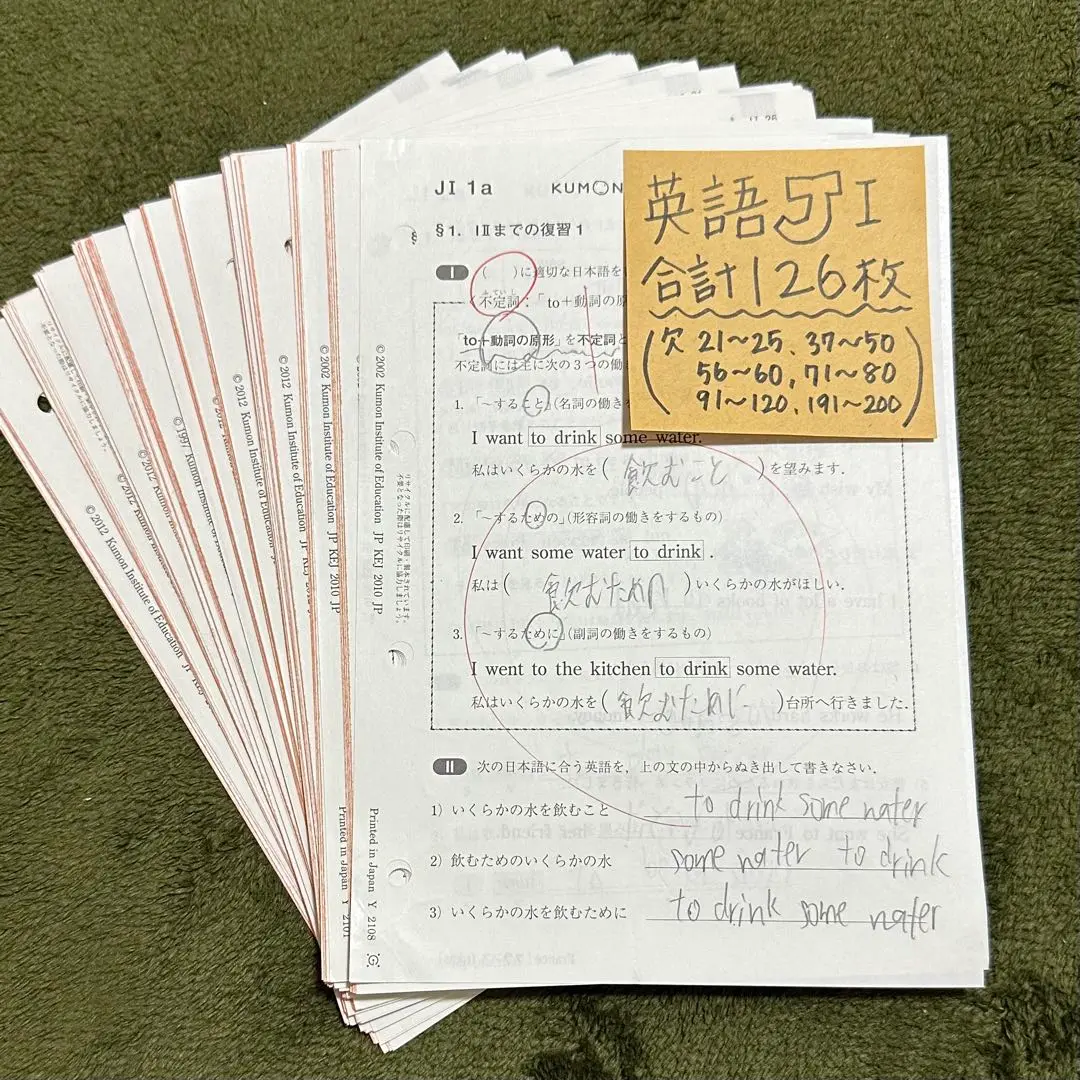 JI 1a KUMON
§1. IⅡまでの復習1
I ( )に適切な日本語を
ふていし
〈不定詞:「to+動詞の原
「to+動詞の原形」を不定詞と
不定詞には主に次の3つの働き
1. 「~すること」(名詞の働きを
I want to drink some water.
私はいくらかの水を( 飲むこと )を望みます.
2. 「~するための」(形容詞の働きをするもの)
I want some water to drink .
私は( 飲むための )いくらかの水がほしい.
3. 「~するために」(副詞の働きをするもの)
I went to the kitchen to drink some water.
私はいくらかの水を( 飲むために )台所へ行きました.
Ⅱ 次の日本語に合う英語を,上の文の中からぬき出して書きなさい.
1) いくらかの水を飲むこと to drink some water
2) 飲むためのいくらかの水 some water to drink
3) いくらかの水を飲むために to drink some water
英語JI
合計126枚
(欠 21~25、37~50
56~60,71~80
91~120、191~200)
© 2002 Kumon Institute of Education JP KEJ 2010 JP
Printed in Japan Y 2108
リサイクルに配慮して印刷・製本されています.
不要となった際はリサイクルに協力しましょう.
© 2002 Kumon Institute of Education JP KEJ 2010 JP
Printed in Japan Y 2101
© 2012 Kumon Institute of Education JP KEJ
© 2012 Kumon Institute of Education JP
© 2012
© 1997 Kumon Institute of Education
© 2012 Kumon Institute of Education
© 2012 Kumon Institute of Education JP
© 2012 Kumon Institute of Education